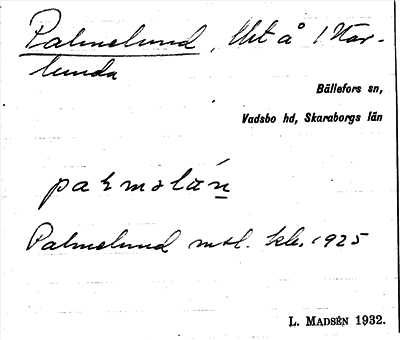 Palmelund, Uts å 1 Har-
lunda
Bällefors sn,
Vadsbo hd, Skaraborgs län
Palmelund mtl. kls. 1925
L. MADSÉN 1932.